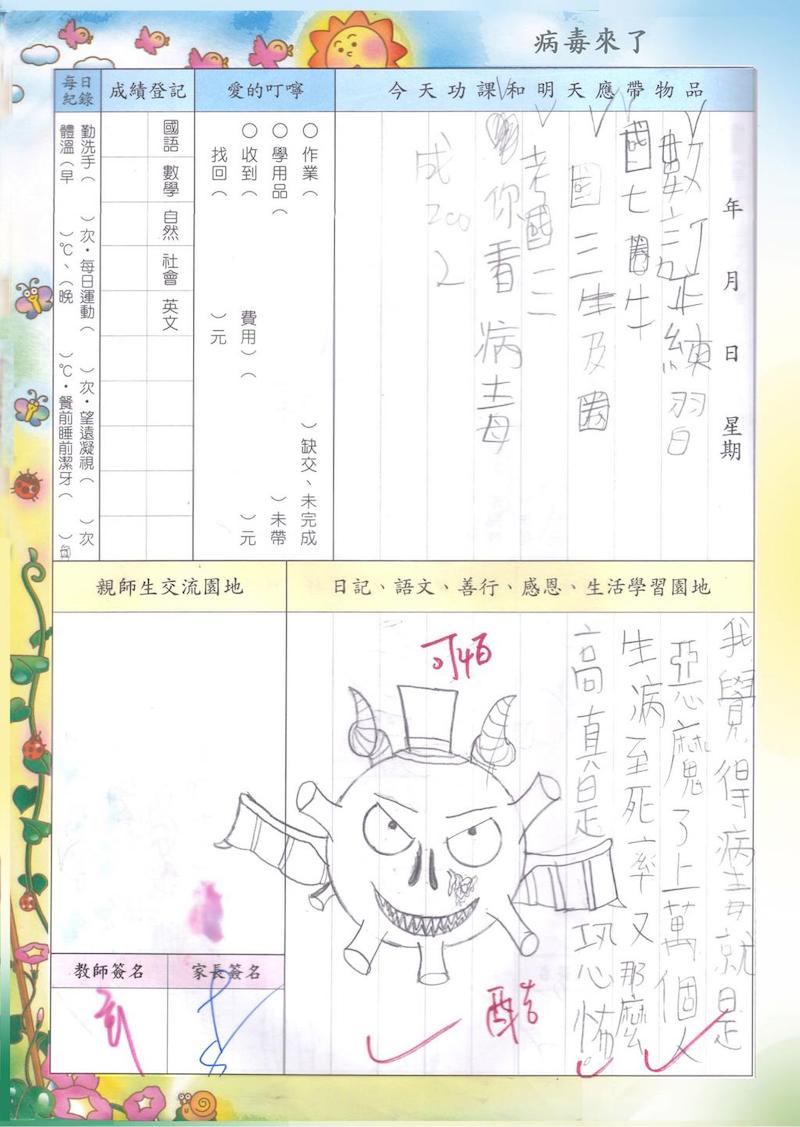 病毒來了
今天功課和明天應帶物品
年　月　日　星期
數訂正練習
國七圈生
國三生及圈
考國三
你看病毒
成
愛的叮嚀
○作業（　）缺交、未完成
○學用品（　）未帶
○收到（　費用）（　）元
找回（　）元
成績登記
國語 數學 自然 社會 英文
每日紀錄
勤洗手（　）次・每日運動（　）次・望遠凝視（　）次
體溫（早　）℃、（晚　）℃・餐前睡前潔牙（　）
日記、語文、善行、感恩、生活學習園地
我覺得病毒就是
惡魔了上萬個人
生病至死率又那麼
高真是恐怖。
酷
親師生交流園地
教師簽名
家長簽名